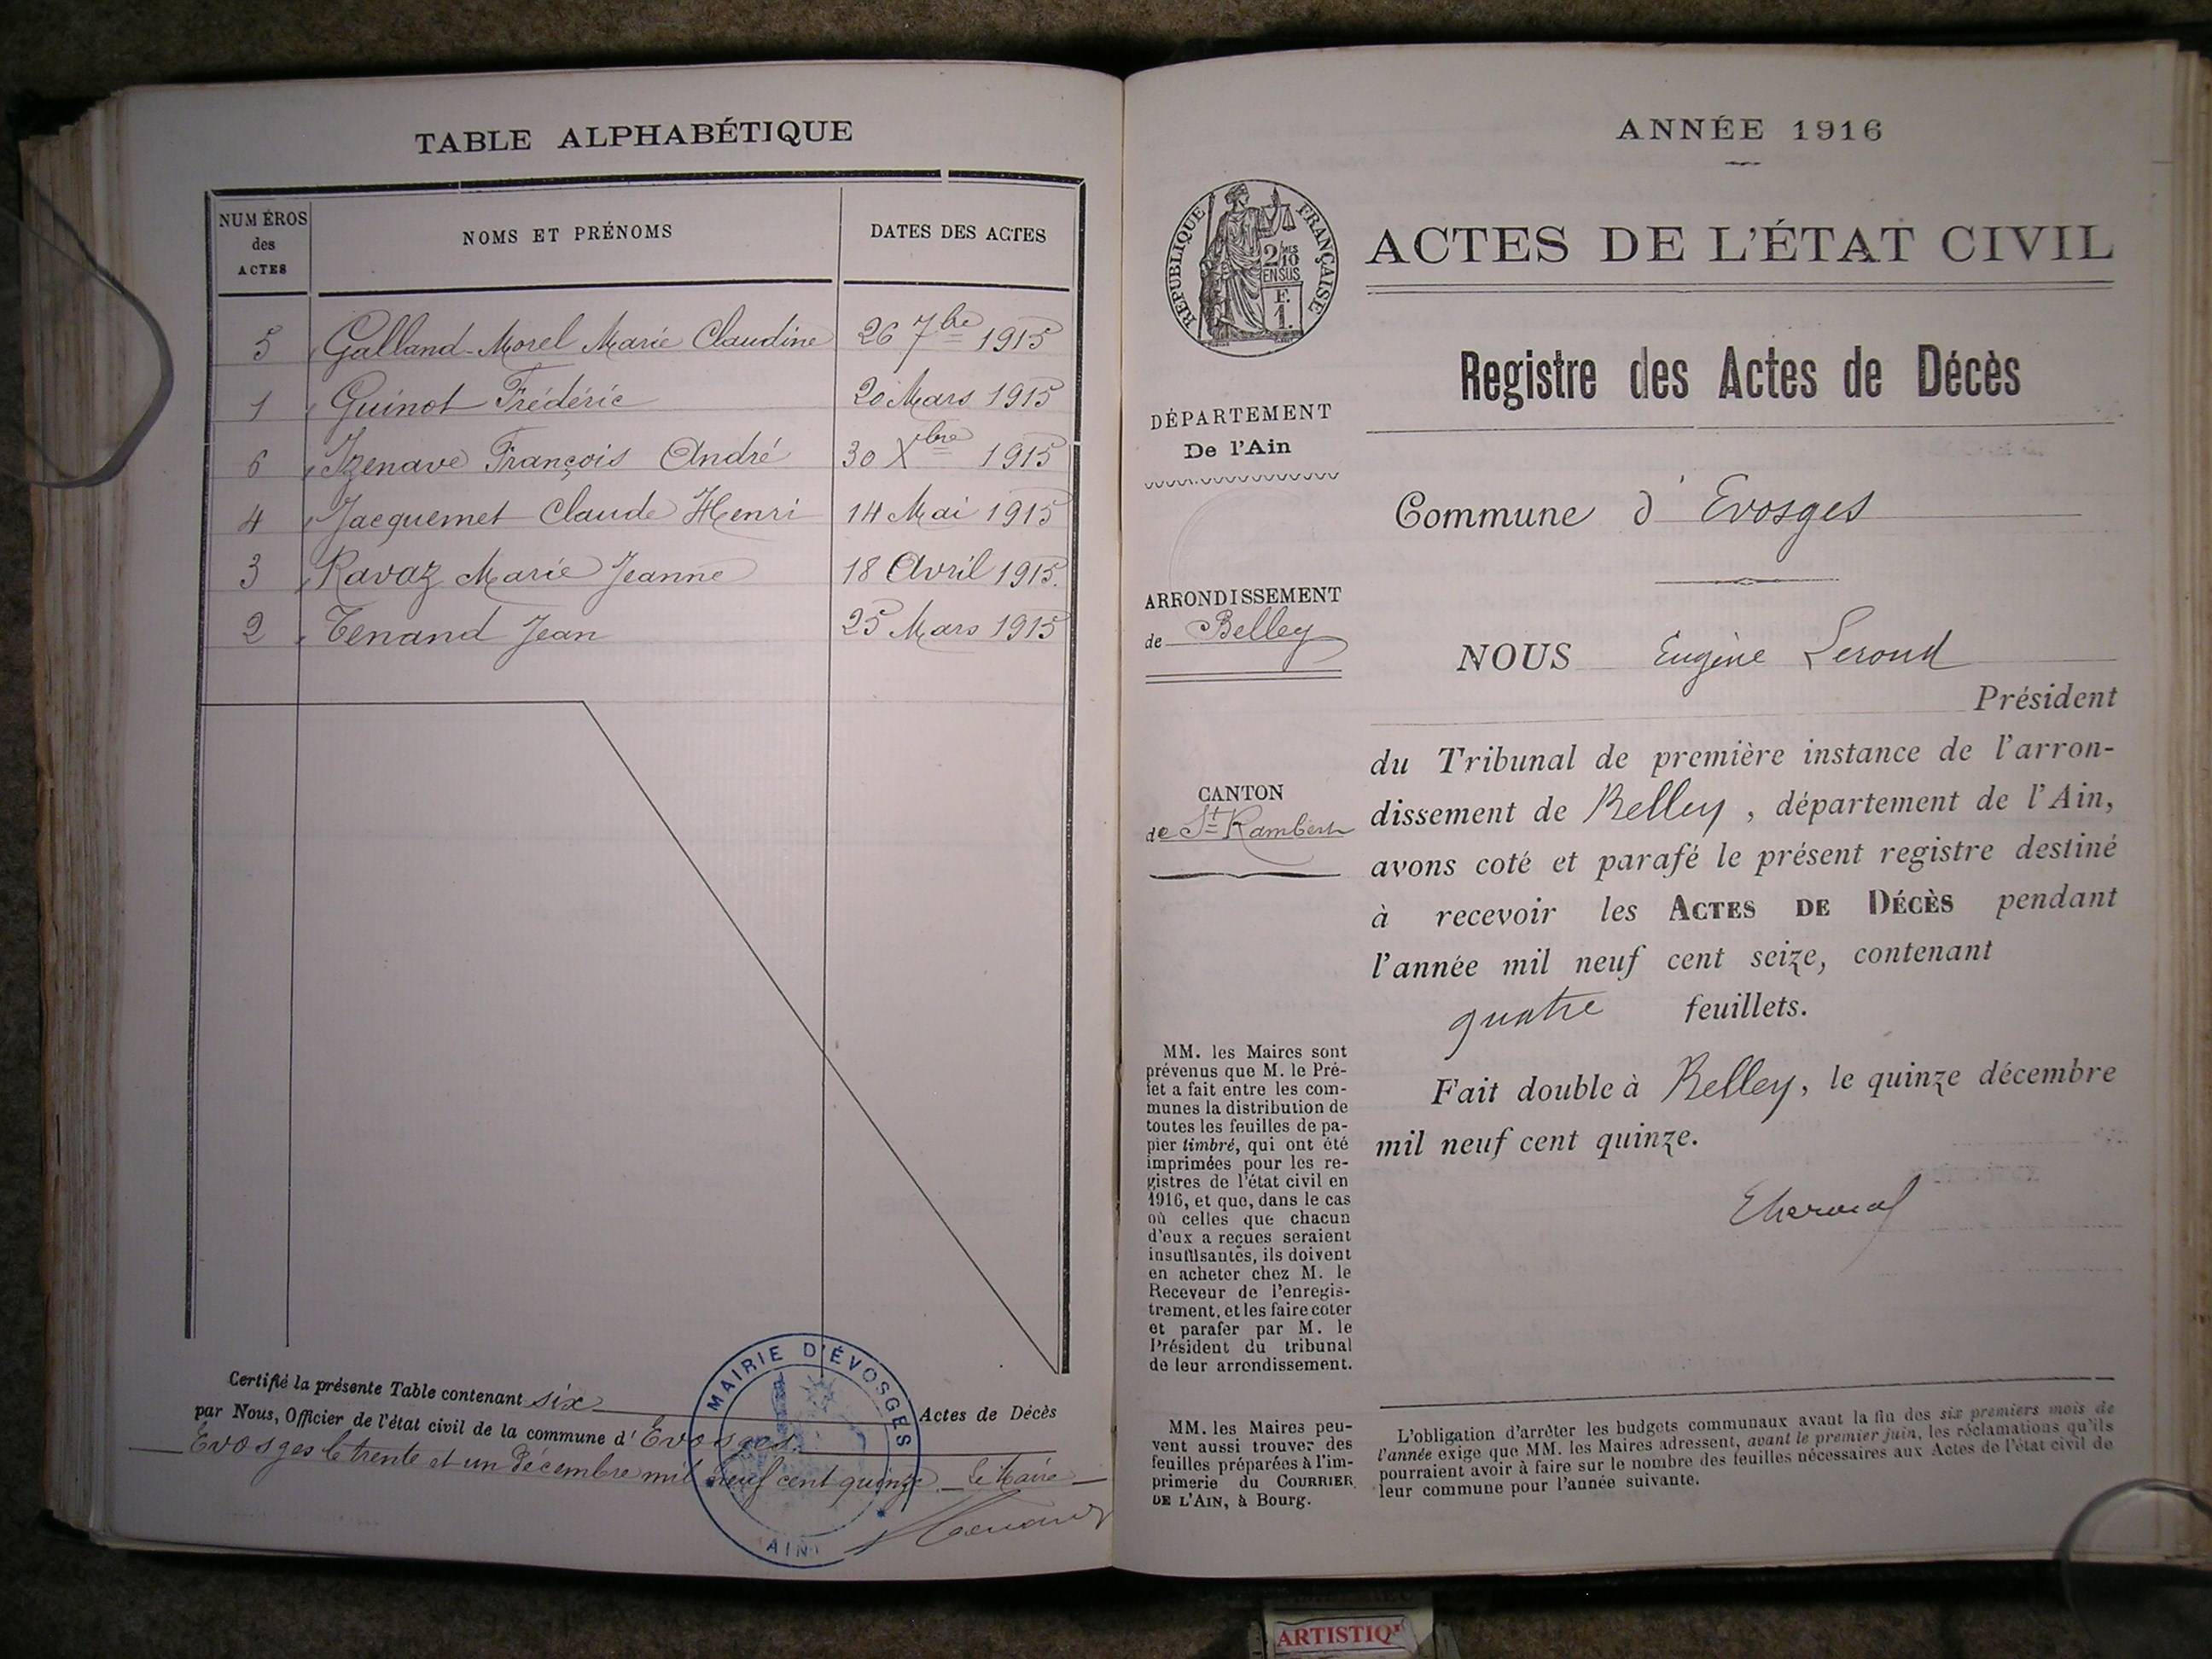 TABLE ALPHABÉTIQUE
NUMÉROS des ACTES NOMS ET PRÉNOMS DATES DES ACTES
5 Galland-Morel Marie Claudine 26 7bre 1915
1 Guinot Frédéric 20 Mars 1915
6 Izenave François André 30 Xbre 1915
4 Jacquemet Claude Henri 14 Mai 1915
3 Ravaz Marie Jeanne 18 Avril 1915.
2 Tenand Jean 25 Mars 1915
Certifié la présente Table contenant six Actes de Décès
par Nous, Officier de l'état civil de la commune d'Evosges.
Evosges le trente et un décembre mil neuf cent quinze _ Le Maire _
MAIRIE D'ÉVOSGES
AIN
ANNÉE 1916
RÉPUBLIQUE FRANÇAISE
2/10MES
EN SUS
F.
1.
ACTES DE L'ÉTAT CIVIL
Registre des Actes de Décès
DÉPARTEMENT
De l'Ain
Commune d'Evosges
ARRONDISSEMENT
de Belley
NOUS Eugène Leroud
Président
du Tribunal de première instance de l'arron-
dissement de Belley, département de l'Ain,
avons coté et parafé le présent registre destiné
à recevoir les ACTES DE DÉCÈS pendant
l'année mil neuf cent seize, contenant
quatre feuillets.
Fait double à Belley, le quinze décembre
mil neuf cent quinze.
CANTON
de St Rambert
MM. les Maires sont
prévenus que M. le Pré-
fet a fait entre les com-
munes la distribution de
toutes les feuilles de pa-
pier timbré, qui ont été
imprimées pour les re-
gistres de l'état civil en
1916, et que, dans le cas
où celles que chacun
d'eux a reçues seraient
insuffisantes, ils doivent
en acheter chez M. le
Receveur de l'enregis-
trement, et les faire coter
et parafer par M. le
Président du tribunal
de leur arrondissement.
MM. les Maires peu-
vent aussi trouver des
feuilles préparées à l'im-
primerie du COURRIER
DE L'AIN, à Bourg.
L'obligation d'arrêter les budgets communaux avant la fin des six premiers mois de
l'année exige que MM. les Maires adressent, avant le premier juin, les réclamations qu'ils
pourraient avoir à faire sur le nombre des feuilles nécessaires aux Actes de l'état civil de
leur commune pour l'année suivante.
ARTISTIQ